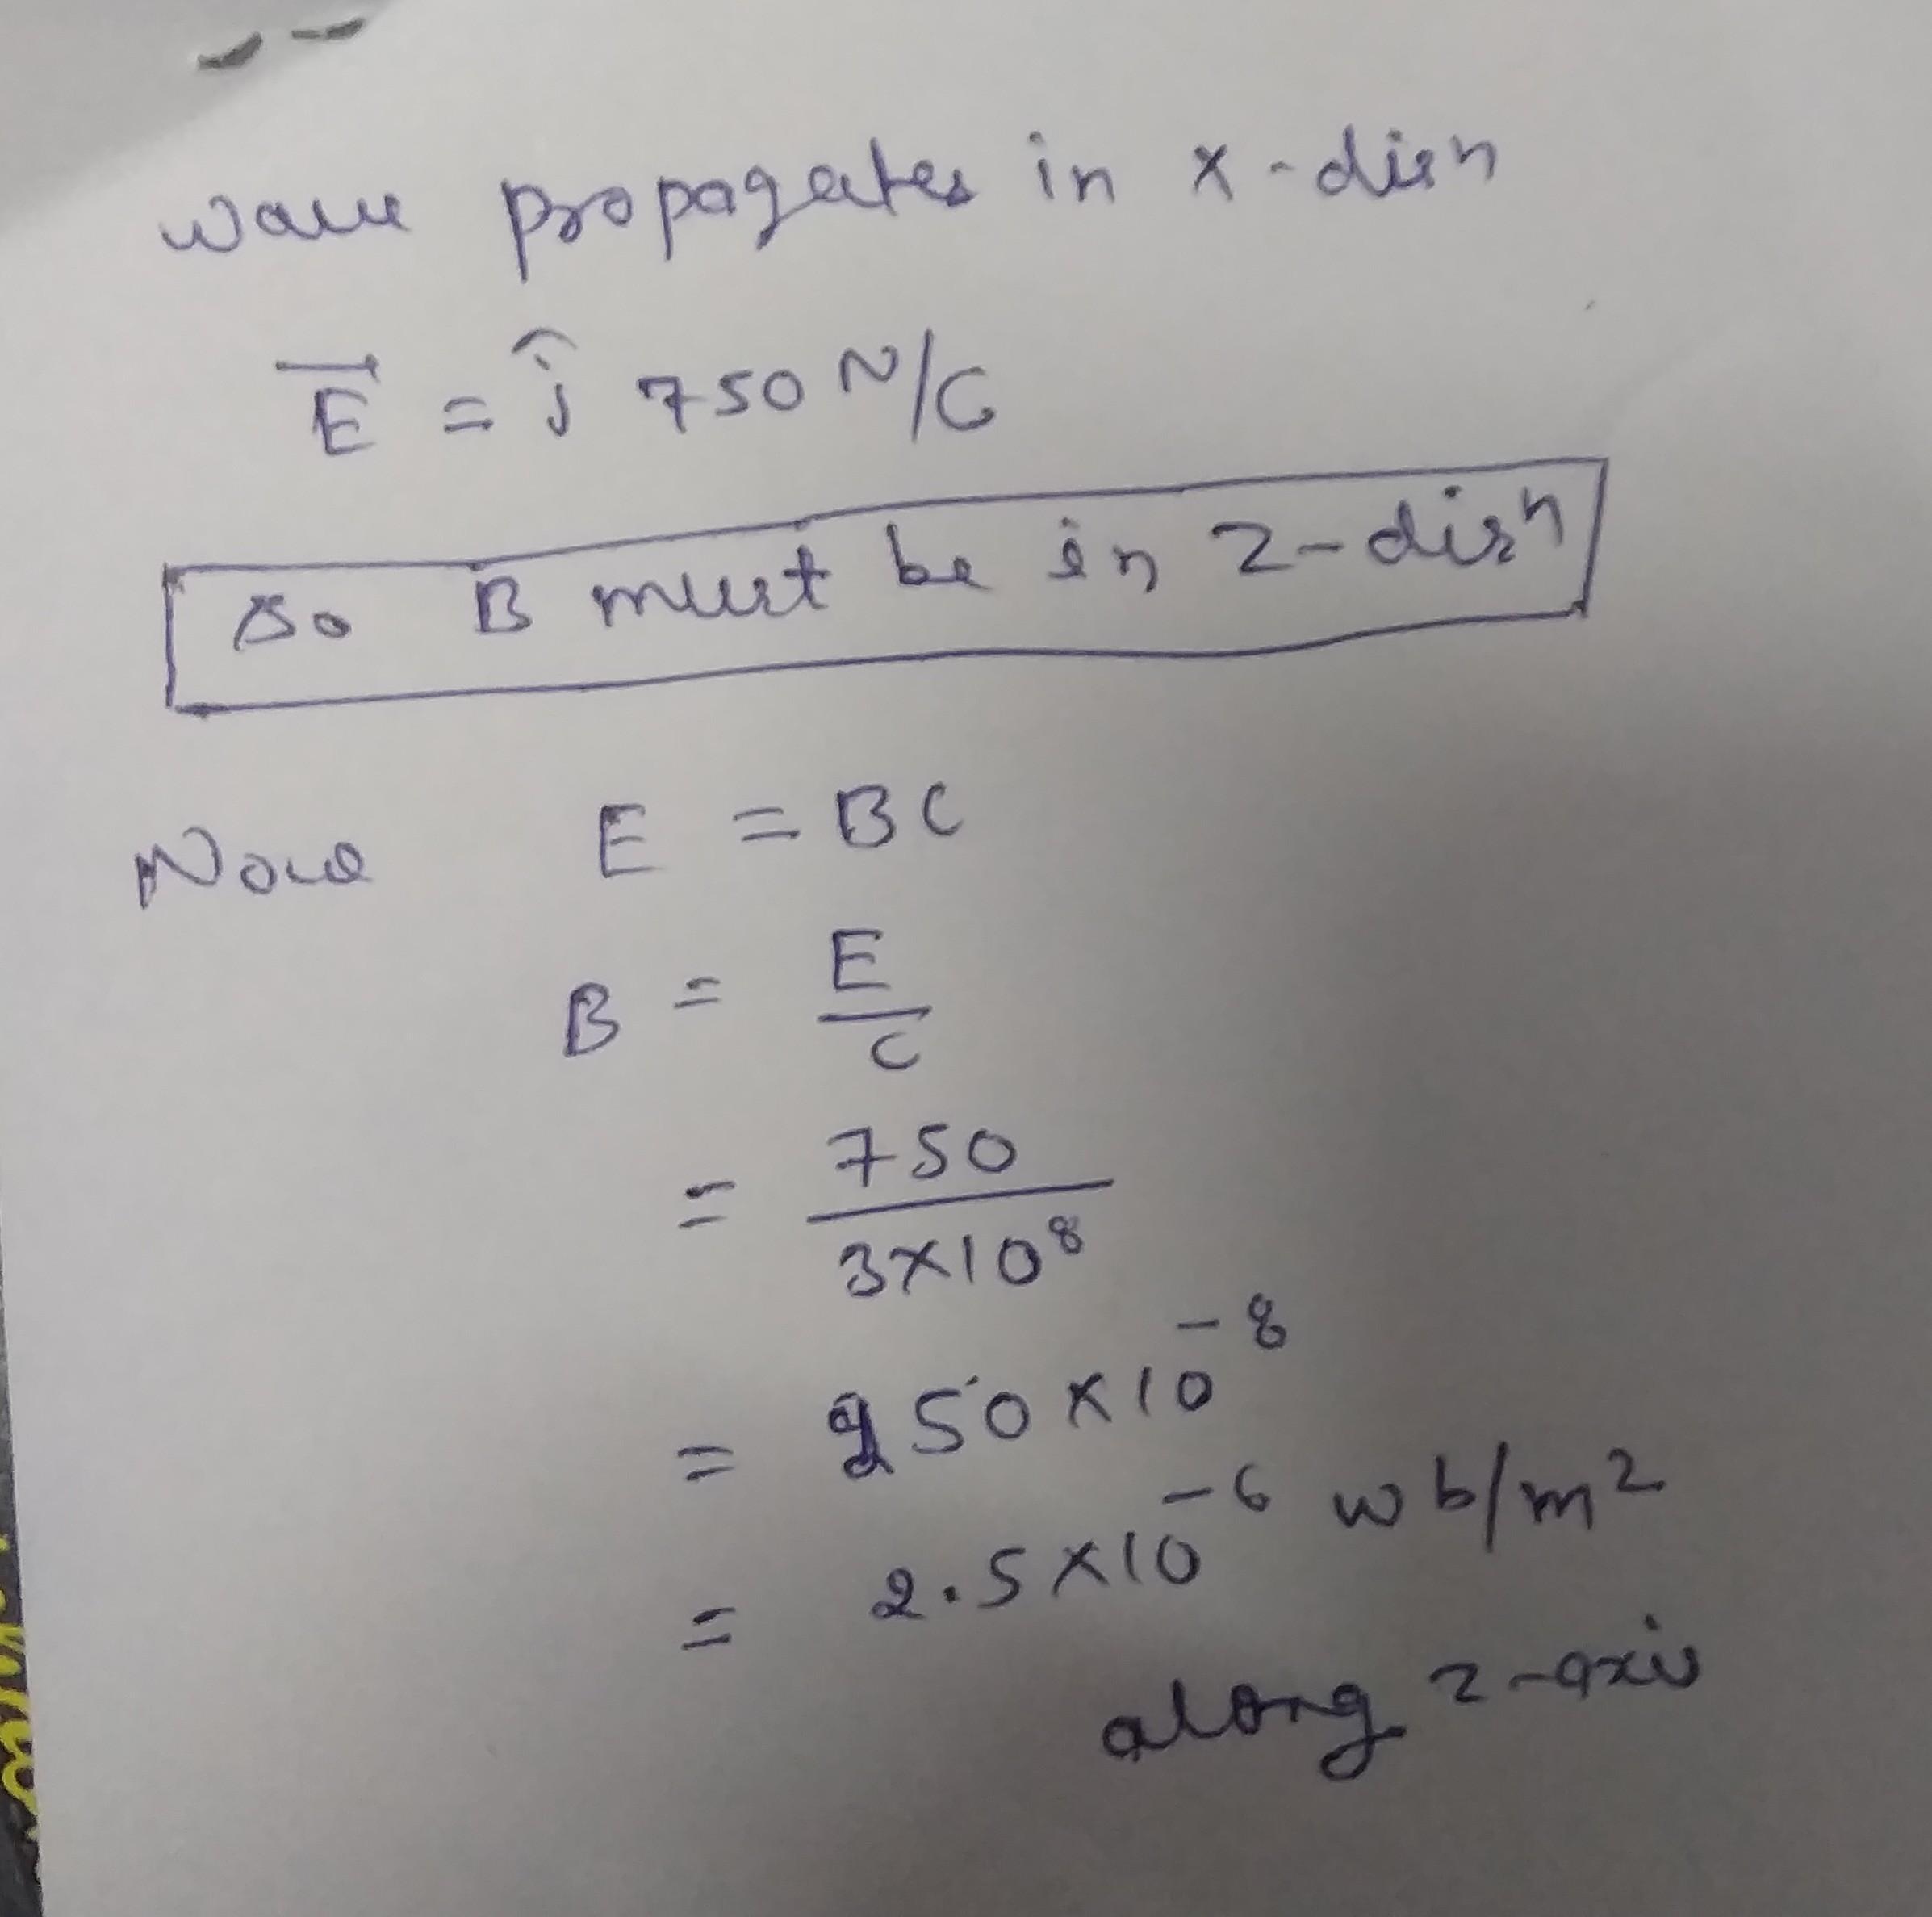 wave propagates in x-dirn
E⃗ = ĵ 750 N/C
So B must be in z-dirn
Now E = BC
B = E/C
= 750/3×10⁸
= 250×10⁻⁸
= 2.5×10⁻⁶ wb/m²
along z-axis